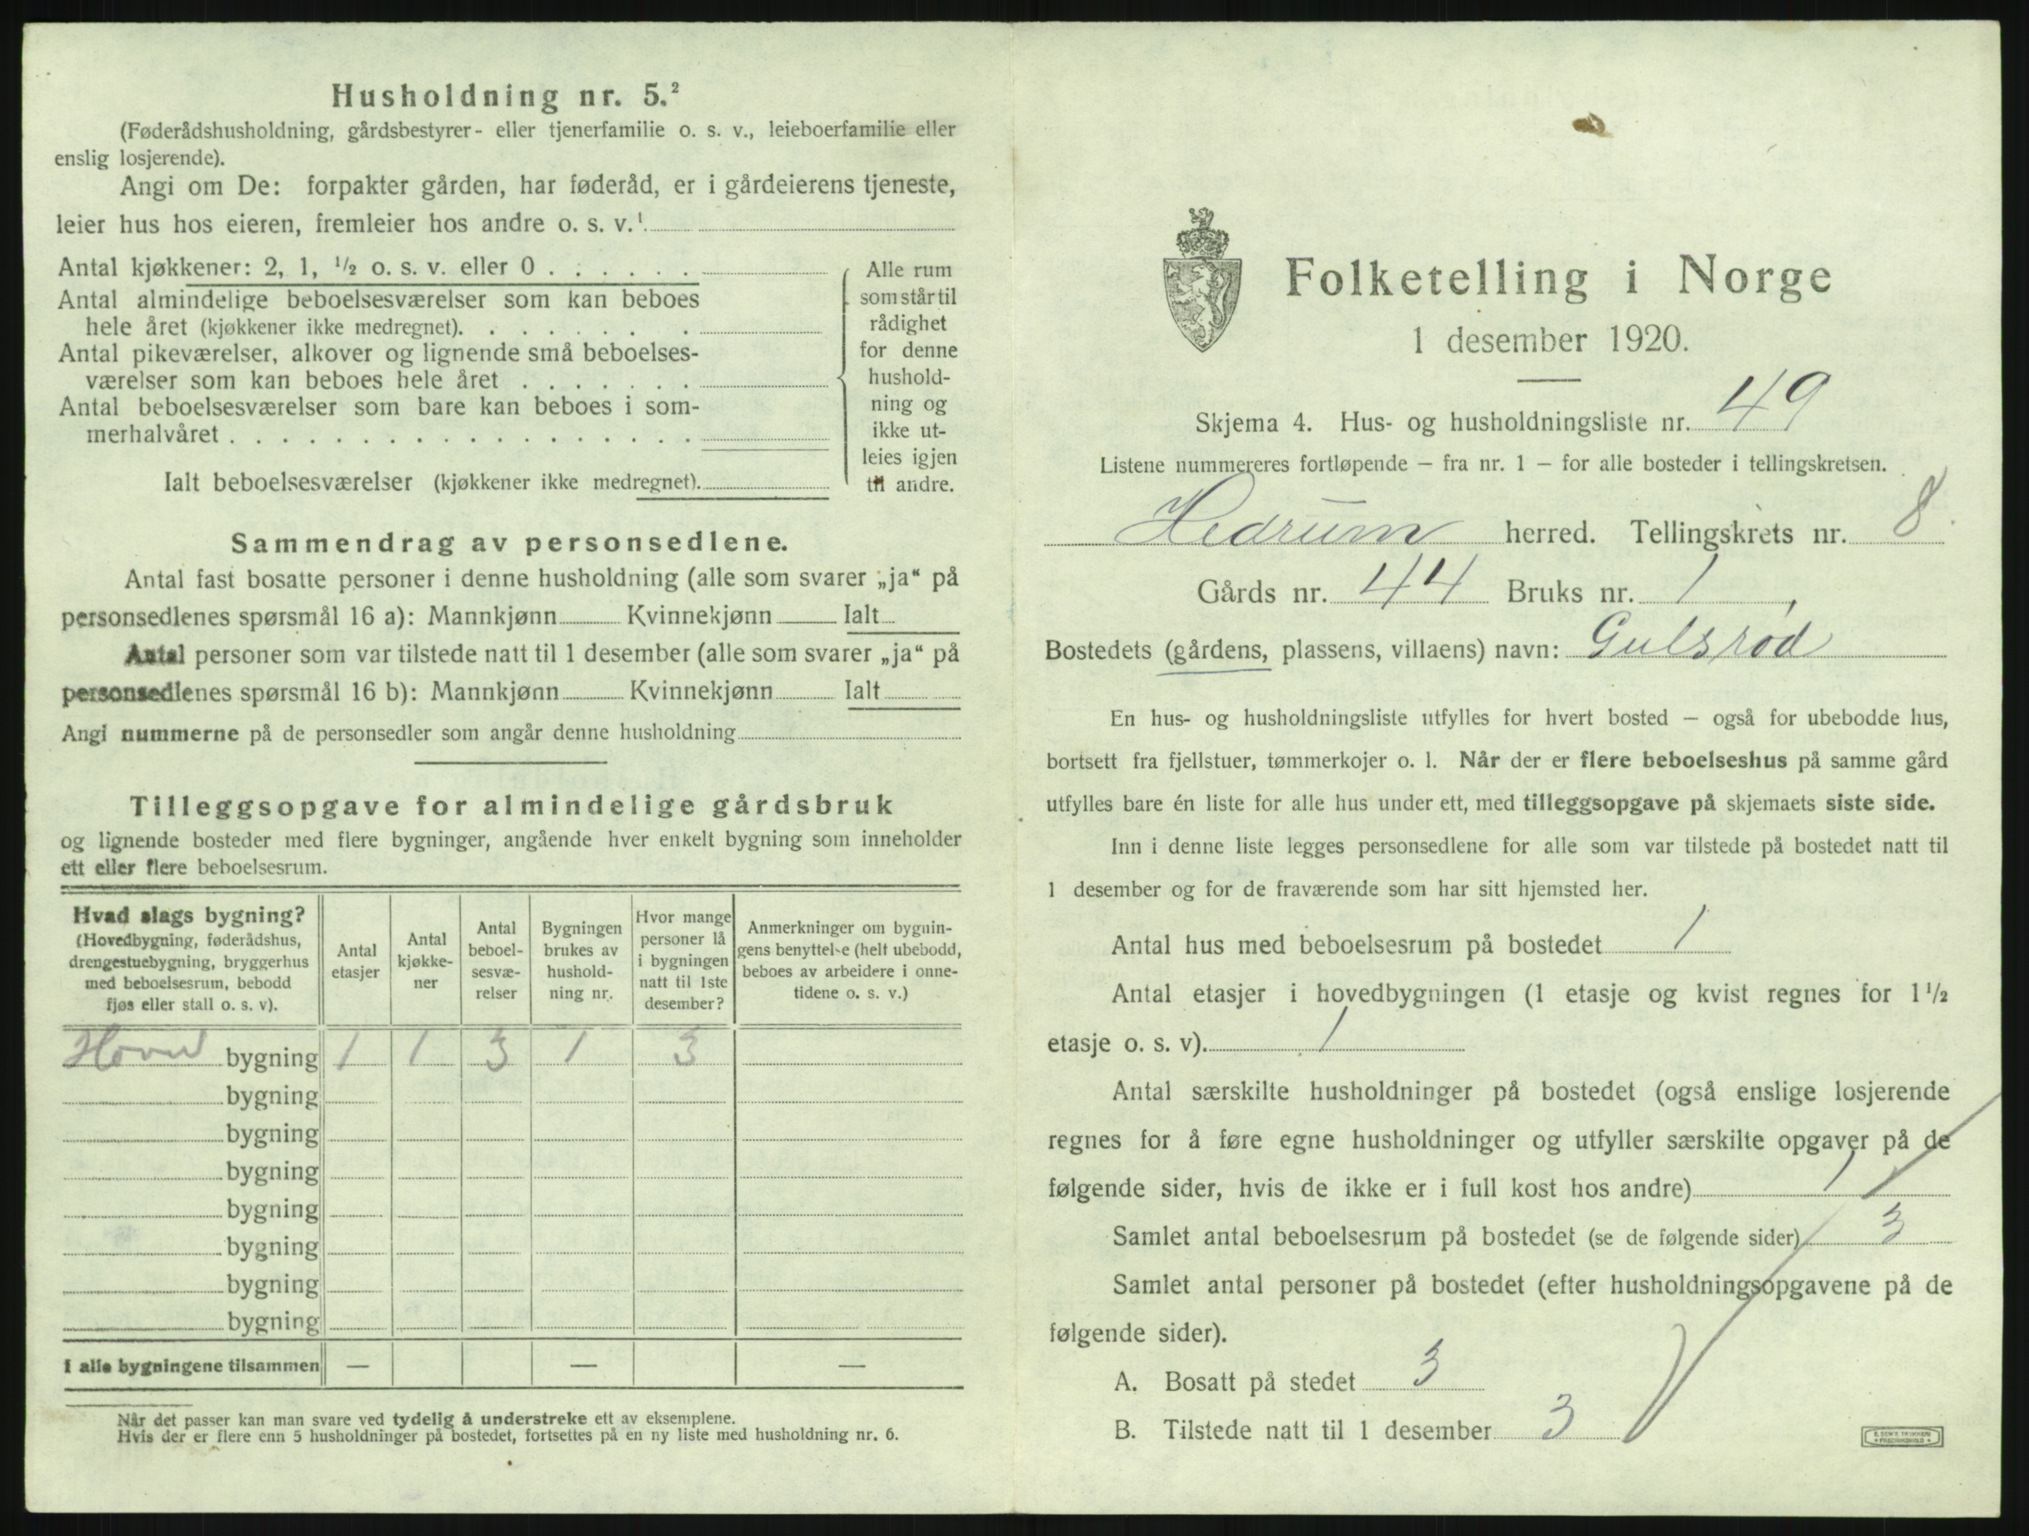 Husholdning nr. 5.²
(Føderådshusholdning, gårdsbestyrer- eller tjenerfamilie o. s. v., leieboerfamilie eller
enslig losjerende).
Angi om De: forpakter gården, har føderåd, er i gårdeierens tjeneste,
leier hus hos eieren, fremleier hos andre o. s. v.¹
Antal kjøkkener: 2, 1, ½ o. s. v. eller 0 . . . . . .
Antal almindelige beboelsesværelser som kan beboes
hele året (kjøkkener ikke medregnet). . . . . . . .
Antal pikeværelser, alkover og lignende små beboelses-
værelser som kan beboes hele året . . . . . . .
Antal beboelsesværelser som bare kan beboes i som-
merhalvåret . . . . . . . . . . . . . . . . . .
Ialt beboelsesværelser (kjøkkener ikke medregnet).
Alle rum
som står til
rådighet
for denne
hushold-
ning og
ikke ut-
leies igjen
til andre.
Sammendrag av personsedlene.
Antal fast bosatte personer i denne husholdning (alle som svarer „ja“ på
personsedlenes spørsmål 16 a): Mannkjønn Kvinnekjønn Ialt
Antal personer som var tilstede natt til 1 desember (alle som svarer „ja“ på
personsedlenes spørsmål 16 b): Mannkjønn Kvinnekjønn Ialt
Angi nummerne på de personsedler som angår denne husholdning
Tilleggsopgave for almindelige gårdsbruk
og lignende bosteder med flere bygninger, angående hver enkelt bygning som inneholder
ett eller flere beboelsesrum.
Hvad slags bygning?
(Hovedbygning, føderådshus,
drengestuebygning, bryggerhus
med beboelsesrum, bebodd
fjøs eller stall o. s. v).
Antal
etasjer
Antal
kjøkke-
ner
Antal
beboel-
sesvæ-
relser
Bygningen
brukes av
hushold-
ning nr.
Hvor mange
personer lå
i bygningen
natt til 1ste
desember?
Anmerkninger om bygnin-
gens benyttelse (helt ubebodd,
beboes av arbeidere i onne-
tidene o. s. v.)
Hoved bygning 1 1 3 1 3
bygning
bygning
bygning
bygning
bygning
bygning
bygning
I alle bygningene tilsammen — — —
Når det passer kan man svare ved tydelig å understreke ett av eksemplene.
Hvis der er flere enn 5 husholdninger på bostedet, fortsettes på en ny liste med husholdning nr. 6.
Folketelling i Norge
1 desember 1920.
Skjema 4. Hus- og husholdningsliste nr. 49
Listene nummereres fortløpende — fra nr. 1 — for alle bosteder i tellingskretsen.
Hedrum herred. Tellingskrets nr. 8.
Gårds nr. 44 Bruks nr. 1,
Bostedets (gårdens, plassens, villaens) navn: Gulsrød
En hus- og husholdningsliste utfylles for hvert bosted — også for ubebodde hus,
bortsett fra fjellstuer, tømmerkojer o. l. Når der er flere beboelseshus på samme gård
utfylles bare én liste for alle hus under ett, med tilleggsopgave på skjemaets siste side.
Inn i denne liste legges personsedlene for alle som var tilstede på bostedet natt til
1 desember og for de fraværende som har sitt hjemsted her.
Antal hus med beboelsesrum på bostedet 1
Antal etasjer i hovedbygningen (1 etasje og kvist regnes for 1½
etasje o. s. v). 1
Antal særskilte husholdninger på bostedet (også enslige losjerende
regnes for å føre egne husholdninger og utfyller særskilte opgaver på de
følgende sider, hvis de ikke er i full kost hos andre) 1
Samlet antal beboelsesrum på bostedet (se de følgende sider) 3
Samlet antal personer på bostedet (efter husholdningsopgavene på de
følgende sider).
A. Bosatt på stedet 3
B. Tilstede natt til 1 desember 3